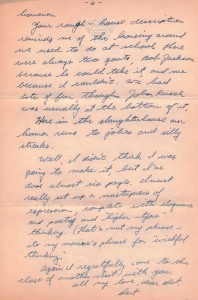 - 6 -
however.
Your rough-house description
reminds me of the housing around
we used to do at school. There
were always two goats, Bob Jackson
because he could take it and me
because I couldn't. We had
lots of fun, though. John Kusik
was usually at the bottom of it.
Here in the slaughterhouse our
humor runs to jokes and silly
streaks.
Well, I didn't think I was
going to make it, but I've
done almost six pages. Almost
really set up a masterpiece of
expression, complete with elegance
and poetry and "higher-type"
thinking. (That's not my phrase-
its my mama's phrase for wishful
thinking).
Again I regretfully come to the
close of another with your
all my love, dear